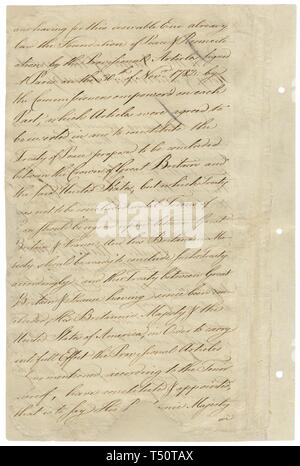 and having for this desirable End already
laid the Foundation of Peace & Reconcili
ation by the Provisional Articles signed
at Paris on the 30th of Novr 1782, by
the Commissioners empower'd on each
Part, which Articles were agreed to
be inserted in and to constitute the
Treaty of Peace proposed to be concluded
between the Crown of Great Britain and
the said United States, but which Treaty
was not to be concluded until Terms of
Peace should be agreed upon between Great
Britain & France, And his Britannic Ma
jesty should be ready to conclude such Treaty
accordingly: and the treaty between Great
Britain & France having since been con
cluded, His Britannic Majesty & the
United States of America, in Order to carry
into full Effect the Provisional Articles
mentioned, according to the Tenor
thereof, have constituted & appointed
that is to say His Majesty
alamy
www.alamy.com - T50TAX